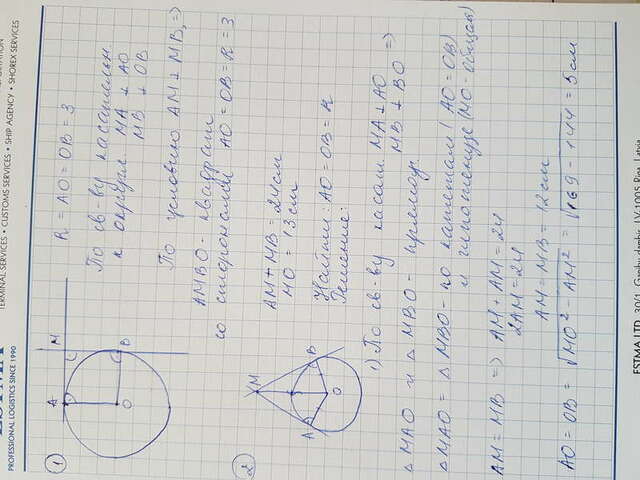 PROFESSIONAL LOGISTICS SINCE 1990
TERMINAL SERVICES • CUSTOMS SERVICES • SHIP AGENCY • SHOREX SERVICES
1
A
M
O
B
R = AO = OB = 3
По св-ву касательн
к окружн. MA ⊥ AO
MB ⊥ OB
По условию AM ⊥ MB, =>
AMBO - квадрат
со сторонами AO = OB = R = 3
2
M
A
B
O
AM + MB = 24 см
MO = 13 см
Найти: AO = OB = R
Решение:
1) По св-ву касат. MA ⊥ AO
MB ⊥ BO =>
△ MAO и △ MBO - прямоуг.
△ MAO = △ MBO - по катетам (AO = OB)
и гипотенузе (MO - общая)
AM = MB => AM + AM = 24
2AM = 24
AM = MB = 12 см
AO = OB = √MO² - AM² = √169 - 144 = 5 см